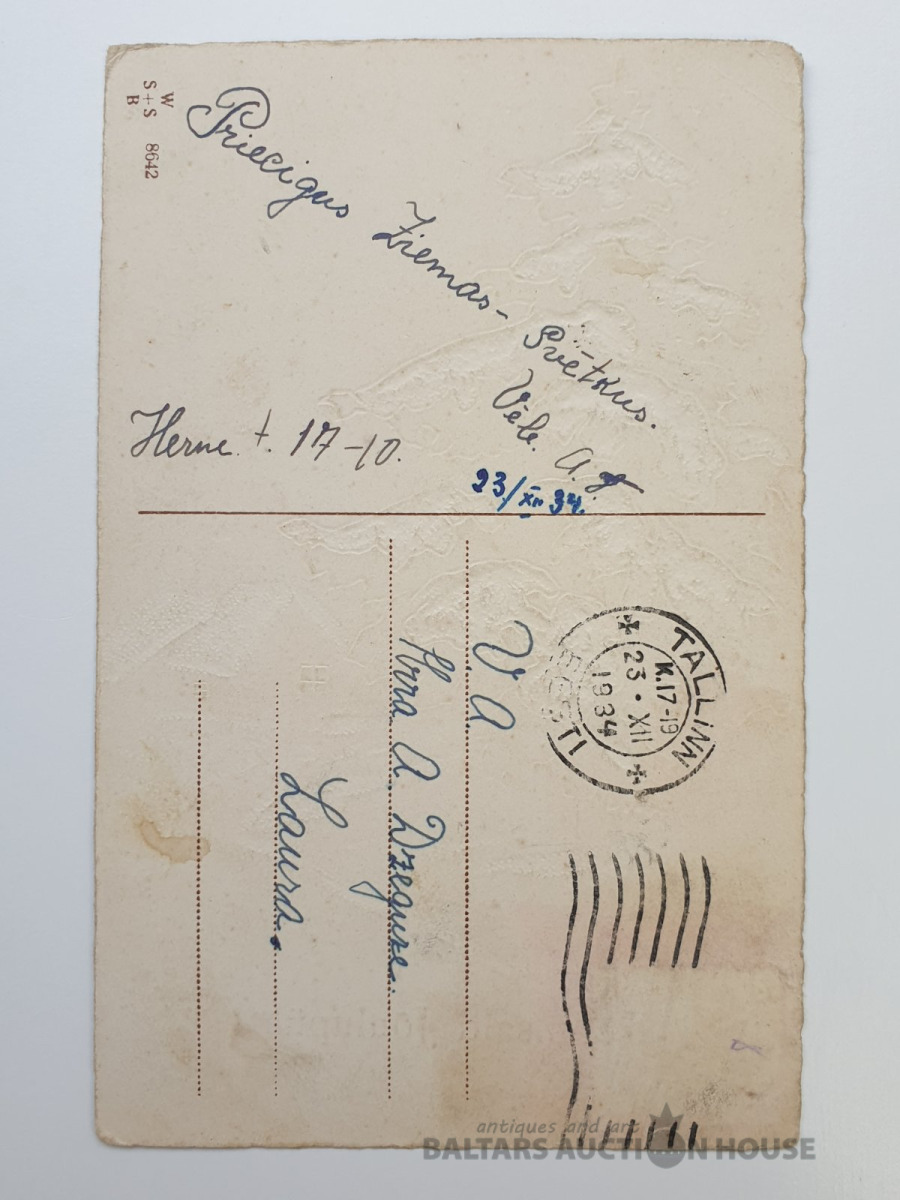 W
S+S 8642
B
Priecigus Ziemas-
Svētkus.
Vēle. A.
23/XII 34.
17-10.
TALLINN
K.17-19
23 • XII
1934
EESTI
V A
A. Dzeguze.
Laura.
antiques and art
BALTARS AUCTION HOUSE